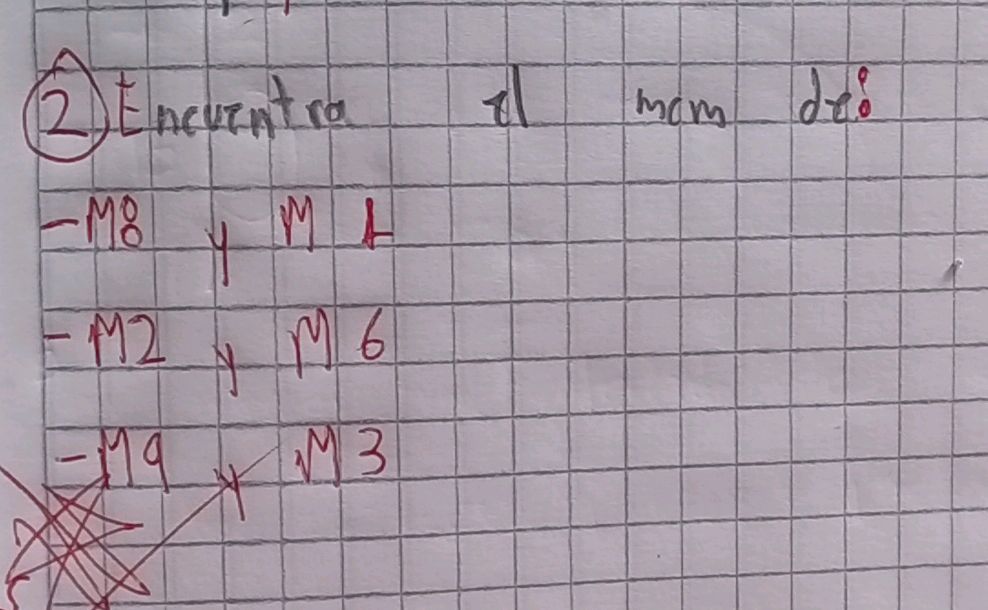 2) Encuentra el mcm de:
-M8 y M 1
-M2 y M 6
-M9 y M 3